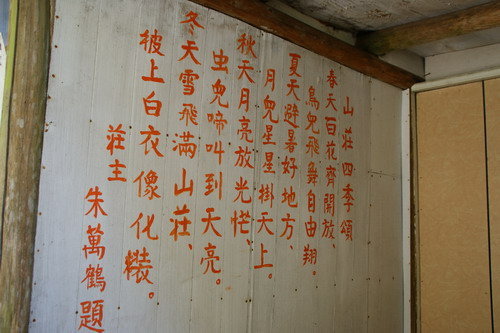 山莊四季頌
春天百花齊開放
鳥兒飛舞自由翔。
夏天避暑好地方、
月兒星星掛天上。
秋天月亮放光芒、
虫兒啼叫到天亮。
冬天雪飛滿山莊、
被上白衣像化裝。
莊主
朱萬鶴題